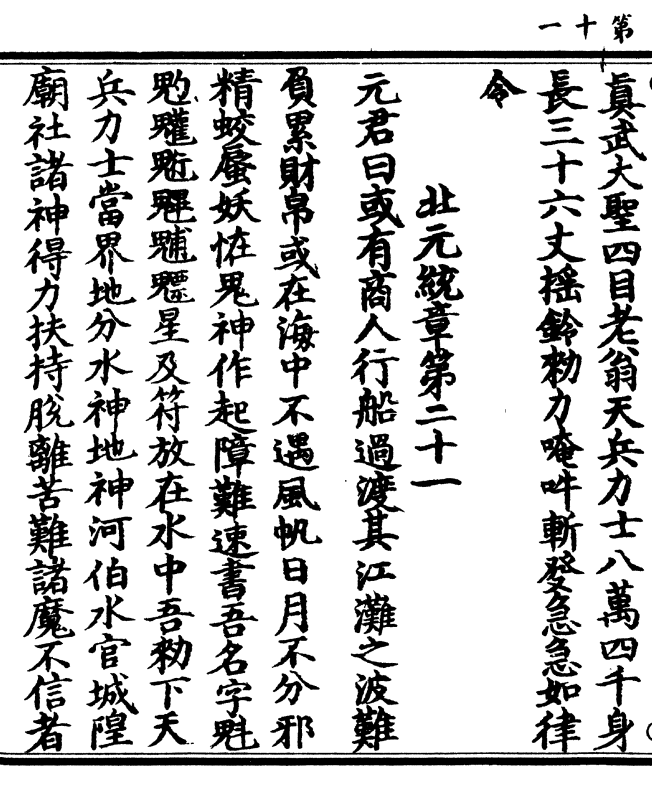 第十一
眞武大聖四目老翁天兵力士八萬四千身
長三十六丈揺鈴勑力唵吽斬發急急如律
令
北元統章第二十一
元君曰或有商人行船過渡其江灘之波難
負累財帛或在海中不遇風帆日月不分邪
精蛟蜃妖恠鬼神作起障難速書吾名字魁
魓魒星及符放在水中吾勑下天
兵力士當界地分水神地神河伯水官城隍
廟社諸神得力扶持脫離苦難諸魔不信者